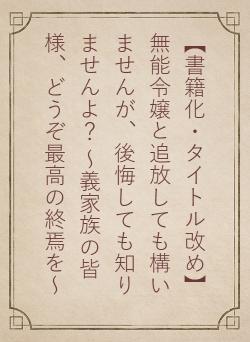 【書籍化・タイトル改め】
無能令嬢と追放しても構い
ませんが、後悔しても知り
ませんよ？～義家族の皆
様、どうぞ最高の終焉を～